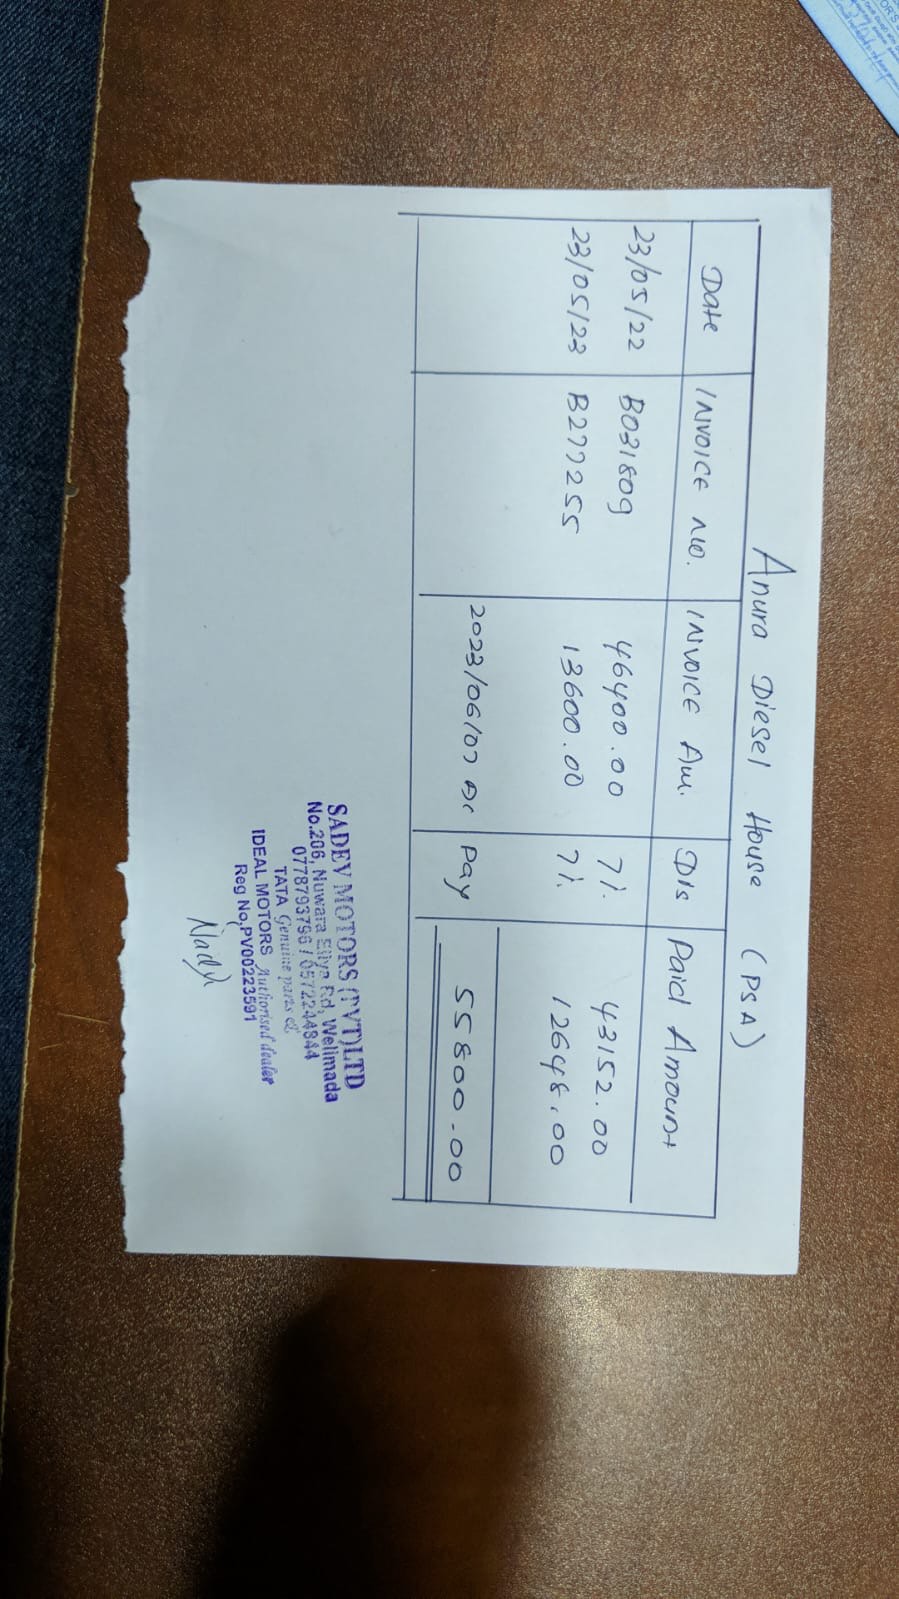 Anura Diesel House (PSA)
Date INVOICE NO. INVOICE Am. Dis Paid Amount
23/05/22 B031809 46400.00 7% 43152.00
23/05/23 B277255 13600.00 7% 12648.00
2023/06/07 Pay 55800.00
SADEV MOTORS (PVT) LTD
No.206, Nuwara Eliya Rd, Welimada
0778793756 / 0572244844
TATA Genuine parts &
IDEAL MOTORS Authorised dealer
Reg No,PV00223591